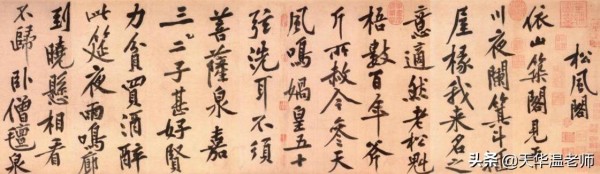 松風閣
依山築閣見平
川夜闌箕斗插
屋椽我來名之
意適然老松魁
梧數百年斧
斤所赦今參天
風鳴媧皇五十
弦洗耳不須
菩薩泉嘉
三二子甚好賢
力貧買酒醉
此筵夜雨鳴廊
到曉懸相看
不歸臥僧氈泉
头条 @天华温老师